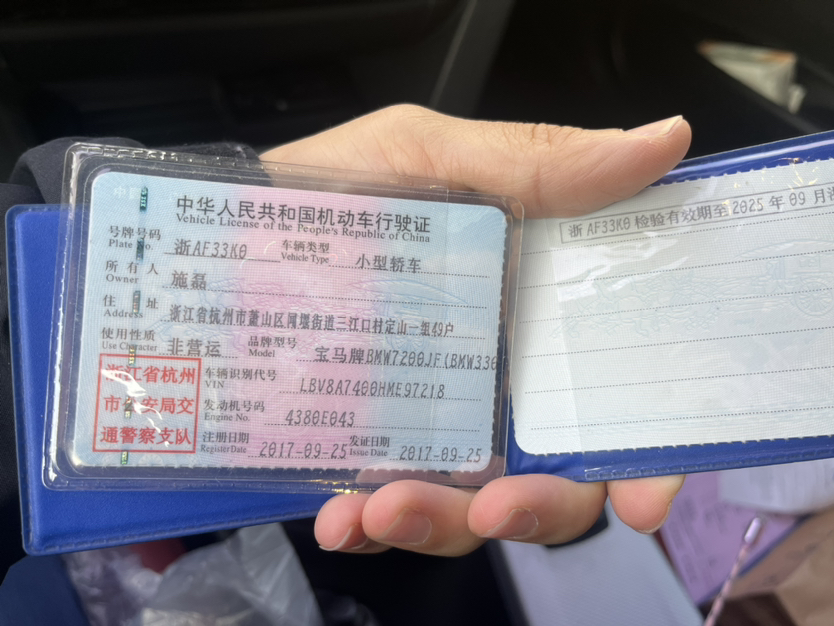 中华人民共和国机动车行驶证
Vehicle License of the People's Republic of China
号牌号码 浙AF33K0 车辆类型 小型轿车
Plate No. Vehicle Type
所有人 施磊
Owner
住址 浙江省杭州市萧山区闻堰街道三江口村定山一组49户
Address
使用性质 非营运 品牌型号 宝马牌BMW7200JF(BMW330
Use Character Model
浙江省杭州
市公安局交
通警察支队
车辆识别代号 LBV8A7400HME97218
VIN
发动机号码 4380E043
Engine No.
注册日期 2017-09-25 发证日期 2017-09-25
Register Date Issue Date
浙AF33K0 检验有效期至2025年09月